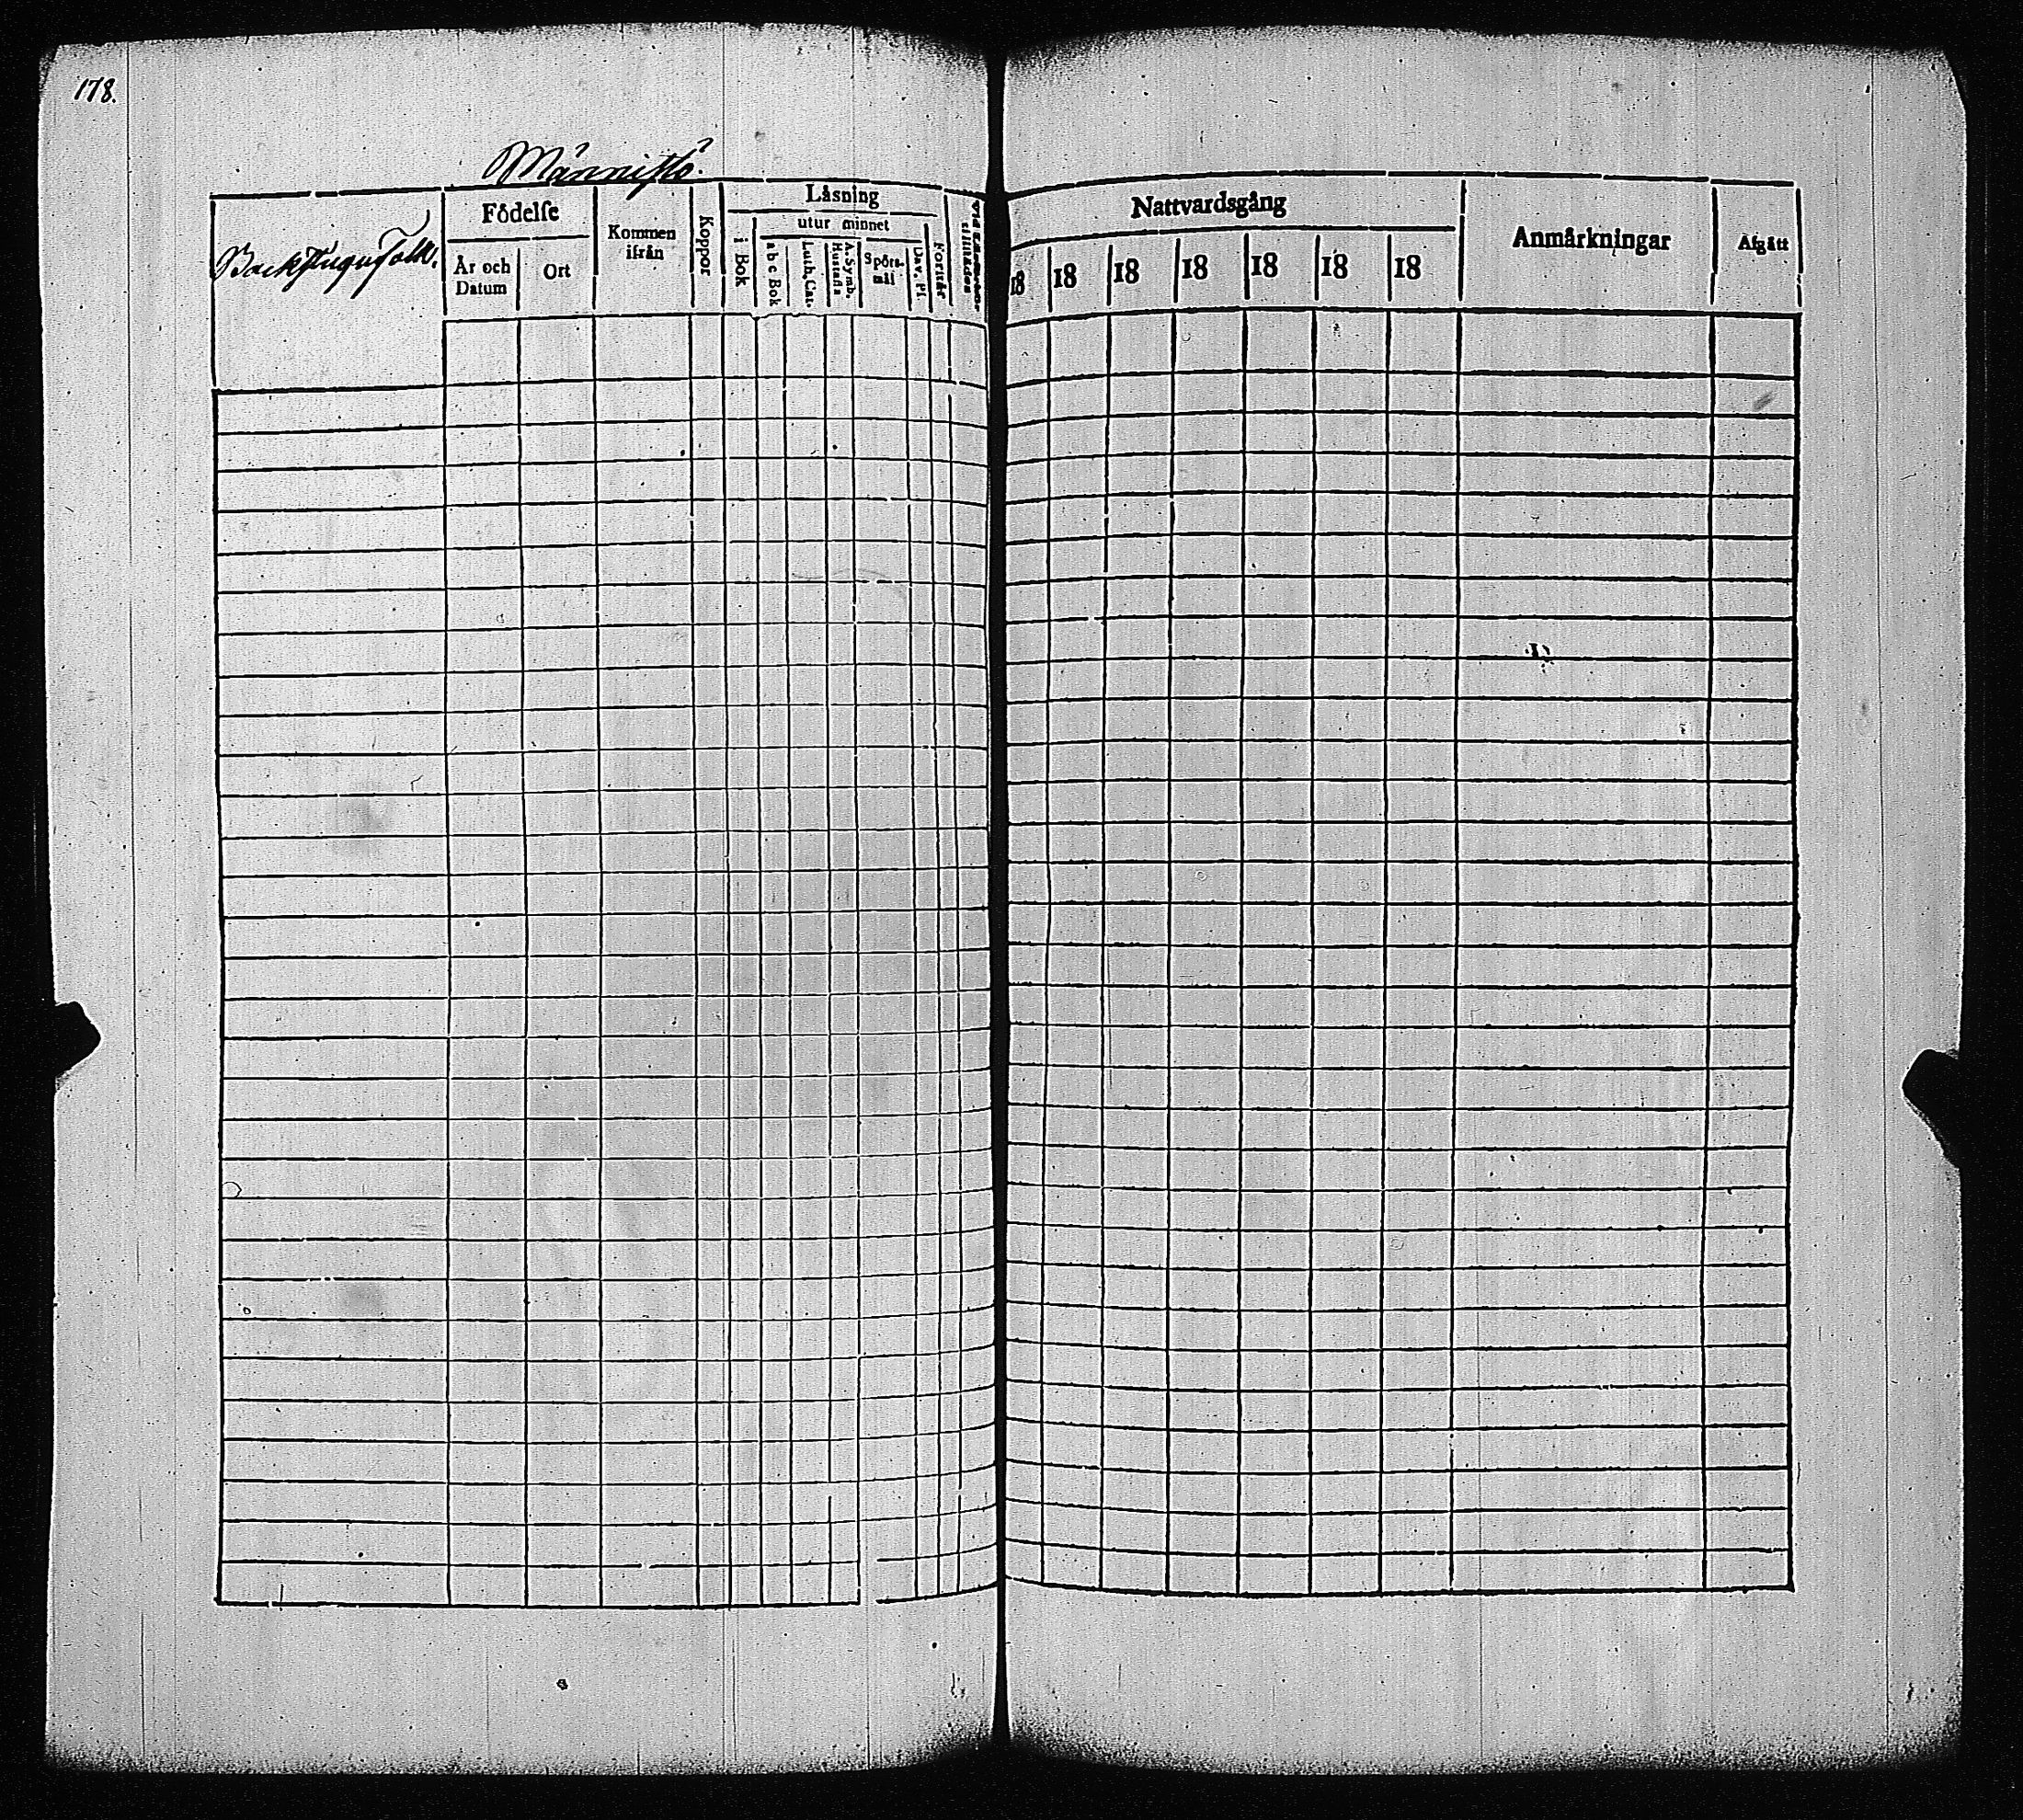 178.
Männistö.
Backstugu Folk.
Födelse
År och Datum
Ort
Kommen ifrån
Koppor
Läsning
i Bok
utur minnet
a b c Bok
Luth. Cat.
A. Symb. Hustafla
Spörs-mål
Dav. Ps.
Förstår
tillstädes
Nattvardsgång
18 18 18 18 18 18 18
Anmärkningar
Afgått